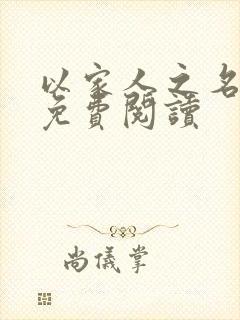 以家人之名
免費閱讀
尚儀掌